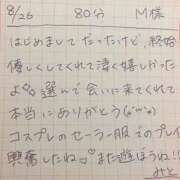 8/26 80分 M様
はじめましてだったけど、終始
優しくしてくれて凄く嬉しかった
よ 選んで会いに来てくれて
本当にありがとう(*'ω'*)
コスプレのセーラー服でのプレイ
興奮したね♡また遊ぼうね!!
みと